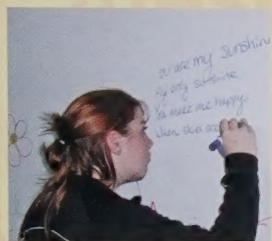 You are my Sunshin
My only sunshine
You make me happy.
When skies are